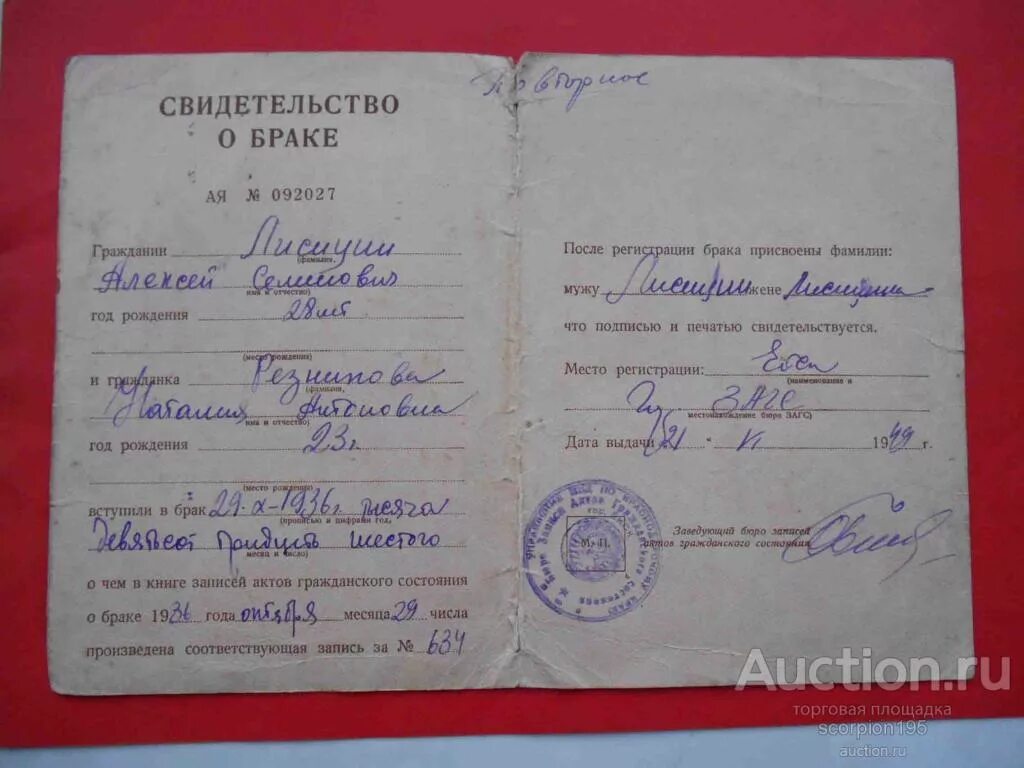 Повторное
СВИДЕТЕЛЬСТВО
О БРАКЕ
АЯ № 092027
Граждании Лисицин
(фамилия,
Алексей Семенович
имя и отчество)
год рождения 28 лет
(место рождения)
и гражданка Резникова
(фамилия,
Наталия Антоновна
имя и отчество)
год рождения 23 г.
(место рождения)
вступили в брак 29-X-1936 г. тысяча
(прописью и цифрами год,
девятьсот тридцать шестого
месяц и число)
о чем в книге записей актов гражданского состояния
о браке 1936 года октября месяца 29 числа
произведена соответствующая запись за № 634
После регистрации брака присвоены фамилии:
мужу Лисицин жене Лисицина
что подписью и печатью свидетельствуется.
Место регистрации:
(наименование и
ЗАГС
местонахождение бюро ЗАГС)
Дата выдачи 21 VI 1949 г.
М. П.
Заведующий бюро записей
актов гражданского состояния
Auction.ru
торговая площадка
scorpion195
auction.ru